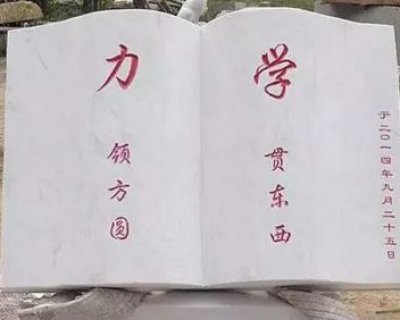 学
贯东西
力
领方圆
于二〇一四年九月二十五日